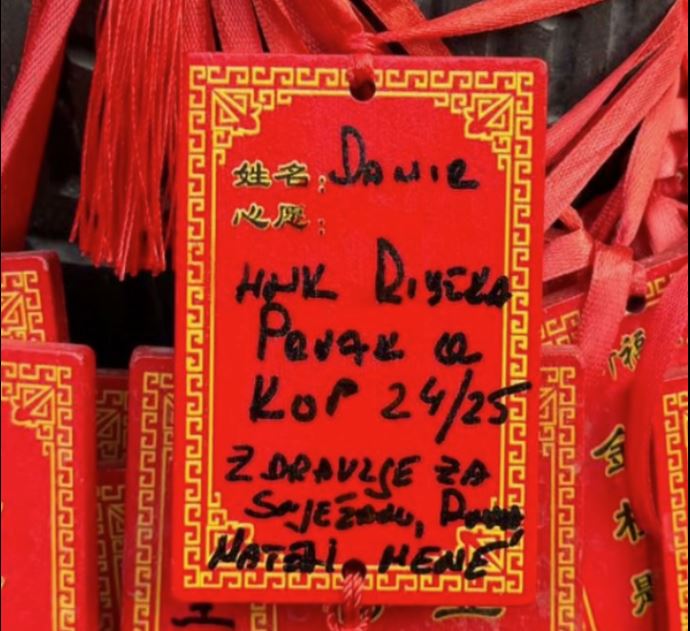 姓名: DAMIR
心愿:
HNK RIJEKA
PRVAK
KUP 24/25
ZDRAVLJE ZA
SNJEŽANU,
MATEJ I MENE
福
金
是